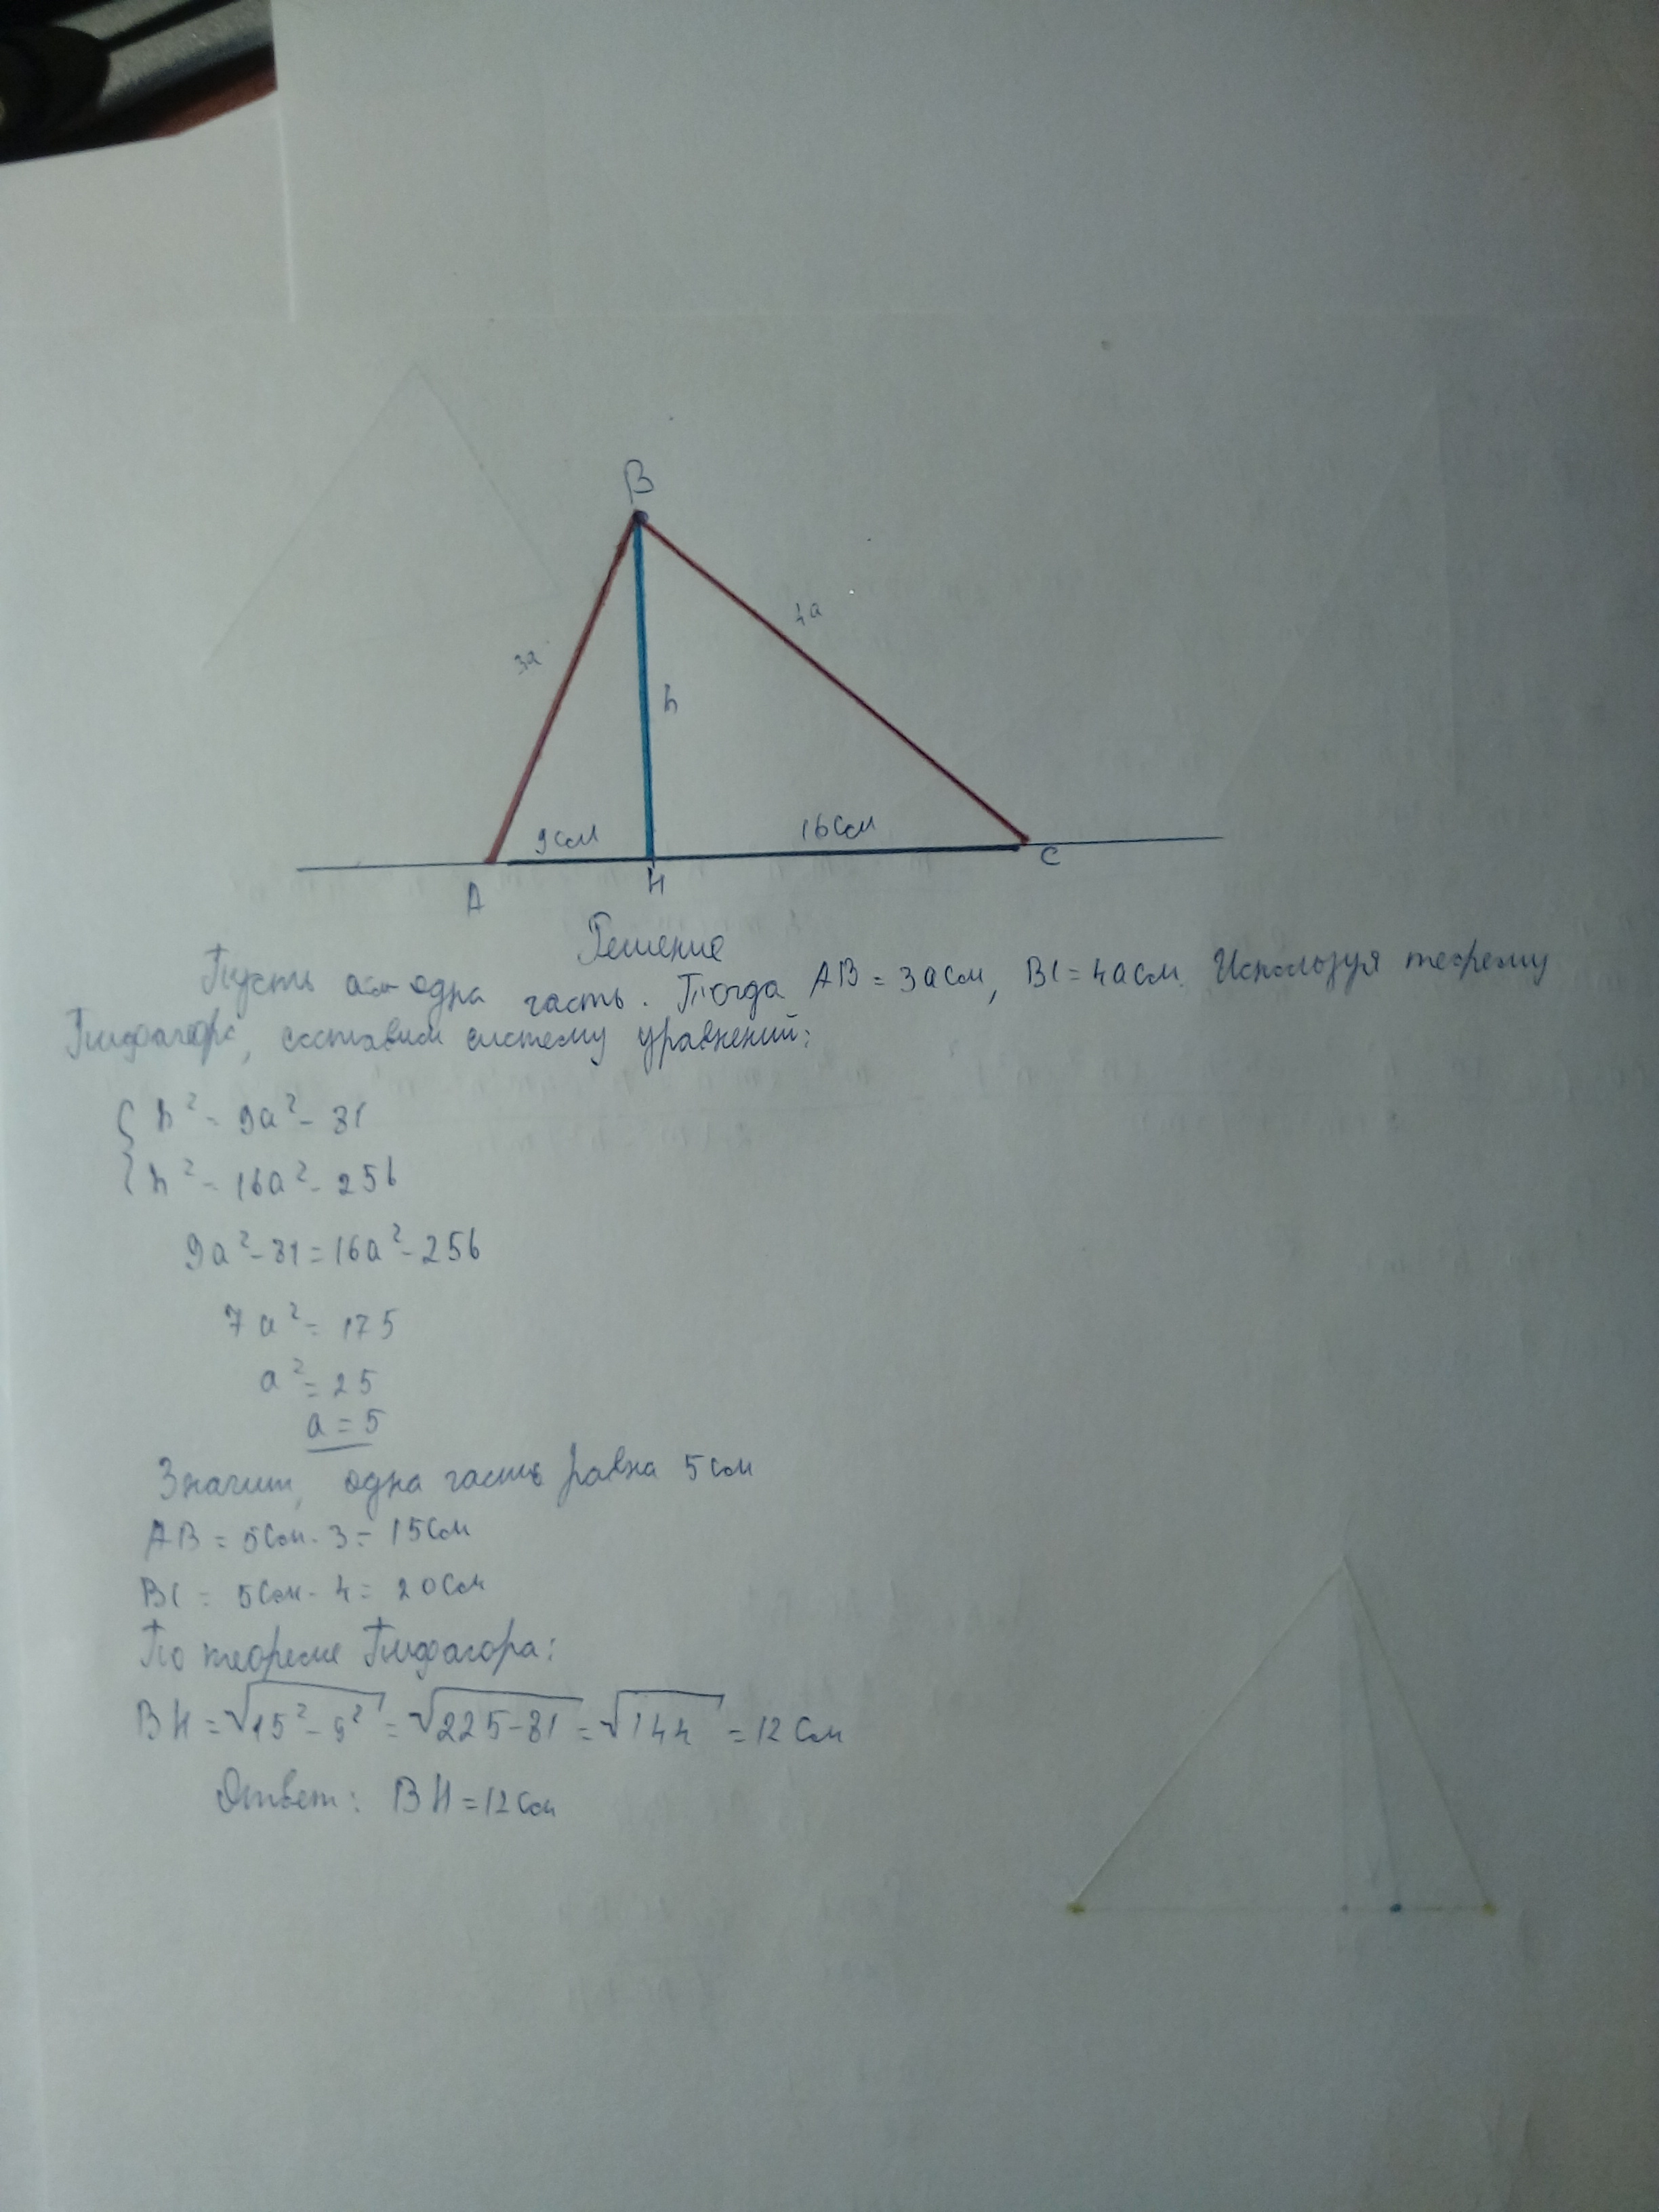 B
4a
3a
h
9см
16см
A
H
C
Решение
Пусть a см одна часть. Тогда AB = 3a см, BC = 4a см. Используя теорему
Пифагора, составим систему уравнений:
{ h² = 9a² - 81
{ h² = 16a² - 256
9a² - 81 = 16a² - 256
7a² = 175
a² = 25
a = 5
Значит, одна часть равна 5 см
AB = 5см · 3 = 15см
BC = 5см · 4 = 20см
По теореме Пифагора:
BH = √15² - 9² = √225 - 81 = √144 = 12 см
Ответ: BH = 12 см